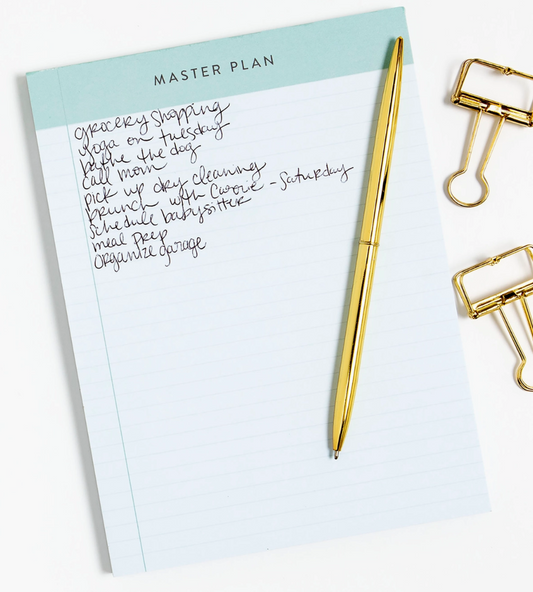 MASTER PLAN
grocery shopping
yoga on tuesday
bathe the dog
call mom
pick up dry cleaning
brunch with Carrie - Saturday
schedule babysitter
meal prep
organize garage